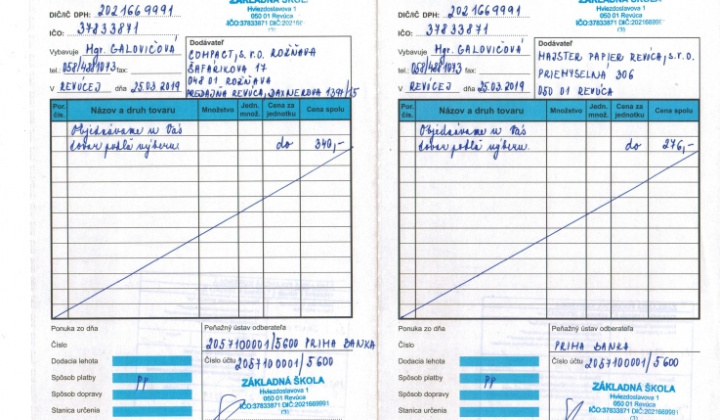 ZÁKLADNÁ ŠKOLA
Hviezdoslavova 1
050 01 Revúca
IČO:37833871 DIČ:2021669991
DIČ/IČ DPH: 2021669991
IČO: 37833871
Vybavuje Mgr. GALOVIČOVÁ
tel. 058/4881073 fax:
V REVÚCEJ dňa 25.03.2019
Dodávateľ
COMPACT, s.r.o. ROŽŇAVA
ŠAFÁRIKOVA 17
048 01 ROŽŇAVA
PREDAJŇA REVÚCA, DAXNEROVA
Por. čís. Názov a druh tovaru Množstvo Jedn. množ. Cena za jednotku Cena spolu
Objednávame u Vás
tovar podľa výberu do 340,-
Ponuka zo dňa
Číslo
Dodacia lehota
Spôsob platby PP
Spôsob dopravy
Stanica určenia
Peňažný ústav odberateľa
2057100001/5600 PRIMA BANKA
Číslo účtu 2057100001/5600
ZÁKLADNÁ ŠKOLA
Hviezdoslavova 1
050 01 Revúca
IČO:37833871 DIČ:2021669991
ZÁKLADNÁ ŠKOLA
Hviezdoslavova 1
050 01 Revúca
IČO:37833871 DIČ:2021669991
DIČ/IČ DPH: 2021669991
IČO: 37833871
Vybavuje Mgr. GALOVIČOVÁ
tel. 058/4881073 fax:
V REVÚCEJ dňa 25.03.2019
Dodávateľ
MAJSTER PAPIER REVÚCA, s.r.o.
PRIEMYSELNÁ 306
050 01 REVÚCA
Por. čís. Názov a druh tovaru Množstvo Jedn. množ. Cena za jednotku Cena spolu
Objednávame u Vás
tovar podľa výberu do 276,-
Ponuka zo dňa
Číslo
Dodacia lehota
Spôsob platby PP
Spôsob dopravy
Stanica určenia
Peňažný ústav odberateľa
PRIMA BANKA
Číslo účtu 2057100001/5600
ZÁKLADNÁ ŠKOLA
Hviezdoslavova 1
050 01 Revúca
IČO:37833871 DIČ:2021669991